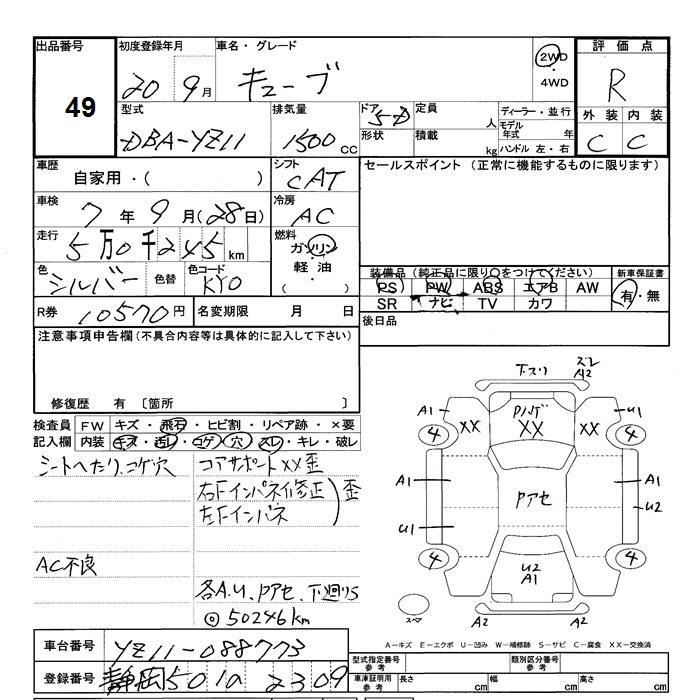 出品番号 初度登録年月 車名・グレード 評価点
49 20 9月 キューブ 2WD ・ 4WD R
型式 排気量 ドア 5D 定員 人 ディーラー・並行 外装 内装
DBA-YZ11 1500cc 形状 積載 kg モデル年式 年 ハンドル 左・右 C C
車歴 シフト セールスポイント (正常に機能するものに限ります)
自家用・( ) CAT
車検 冷房
7年9月(28日) AC
走行 燃料
5万0千245km ガソリン・軽油・( )
色 色替 色コード 装備品 (純正品に限り○をつけてください) 新車保証書
シルバー KY0 PS PW ABS エアB AW 有・無
SR ナビ TV カワ
R券 10570円 名変期限 月 日 後日品
注意事項申告欄 (不具合内容等は具体的に記入して下さい)
修復歴 有 〔箇所 〕
検査員 FW キズ・飛石・ヒビ割・リペア跡・×要
記入欄 内装 キズ・汚レ・コゲ・穴・スレ・キレ・破レ
シートヘたり、コゲ穴 コアサポートXX歪
右Fインパネ(修正)歪
左Fインパネ
AC不良
各A.U、Pアセ、下廻りS
◎50246km
下スリ スレ A2
A1 XX PハゲXX XX U1
4 4
A1 Pアセ A1
U1 U2
4 U2 A1 4
スペア A2 A2
A－キズ E－エクボ U－凹み W－補修跡 S－サビ C－腐食 XX－交換済
車台番号 YZ11-088773
登録番号 静岡 501 ロ 2309
型式指定番号 参考 類別区分番号 参考
車庫証明用 参考 長さ cm 幅 cm 高さ cm